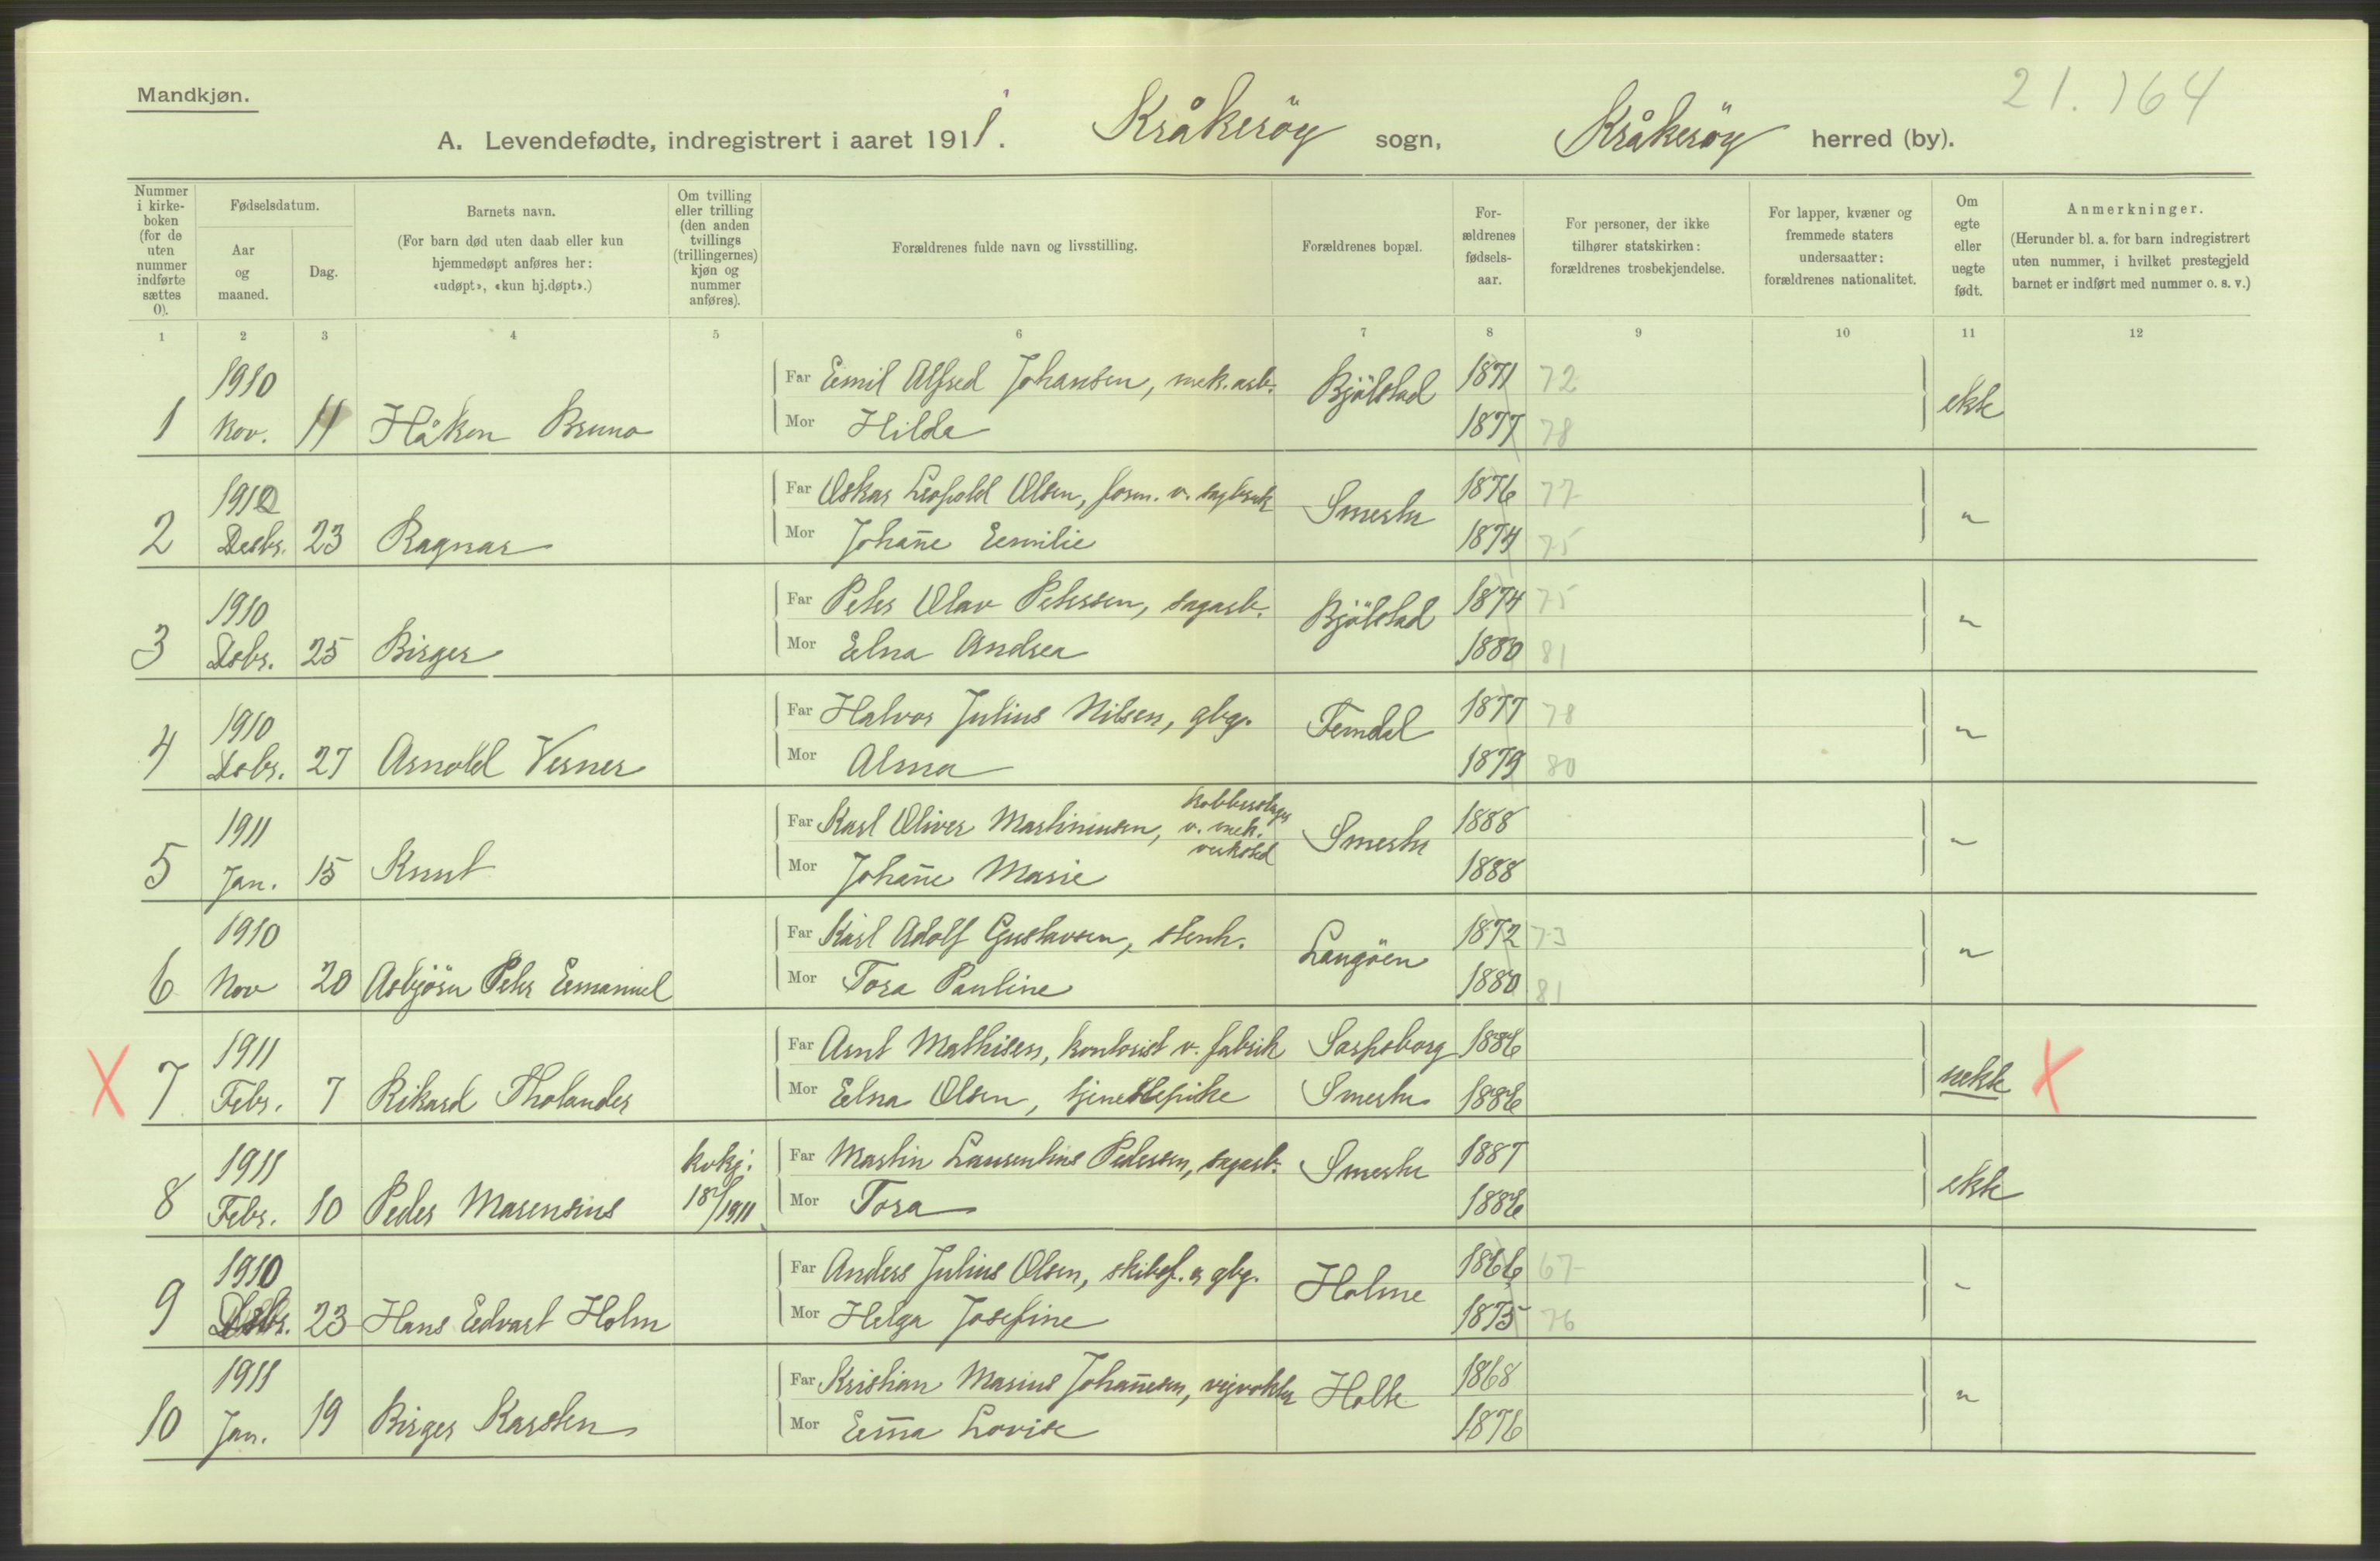 21. 164
Mandkjøn.
A. Levendefødte, indregistrert i aaret 1911. Kråkeröy sogn, Kråkeröy herred (by).
Nummer i kirkeboken (for de uten nummer indførte sættes 0). | Fødselsdatum. Aar og maaned. | Dag. | Barnets navn. (For barn død uten daab eller kun hjemmedøpt anføres her: «udøpt», «kun hj.døpt».) | Om tvilling eller trilling (den anden tvillings (trillingernes) kjøn og nummer anføres). | Forældrenes fulde navn og livsstilling. | Forældrenes bopæl. | Forældrenes fødselsaar. | For personer, der ikke tilhører statskirken: forældrenes trosbekjendelse. | For lapper, kvæner og fremmede staters undersaatter: forældrenes nationalitet. | Om egte eller uegte født. | Anmerkninger. (Herunder bl. a. for barn indregistrert uten nummer, i hvilket prestegjeld barnet er indført med nummer o. s. v.)
1 2 3 4 5 6 7 8 9 10 11 12
1910 Far Emil Alfred Johansen, mek. arb. Bjölstad 1871 72
1 Nov. 11 Håkon Bruno Mor Hilda 1877 78 ekte
1910 Far Oskar Leopold Olsen, form. v. sagbruk Smertu 1876 77
2 Desbr. 23 Ragnar Mor Johan̄e Emilie 1874 75 "
1910 Far Peter Olav Petersen, sagarb. Bjölstad 1874 75
3 Dsbr. 25 Birger Mor Elna Andrea 1880 81 "
1910 Far Halvor Julius Nilsen, gbr. Femdal 1877 78
4 Dsbr. 27 Arnold Verner Mor Alma 1879 80 "
1911 Far Karl Oliver Martiniusen, kobberslager v. mek. verksted Smertu 1888
5 Jan. 15 Knut Mor Johan̄e Marie 1888 "
1910 Far Karl Adolf Gustavsen, stenh. Langöen 1872 73
6 Nov 20 Asbjörn Peter Emanuel Mor Tora Pauline 1880 81 "
1911 Far Arnt Mathisen, kontorist v. fabrik Sarpsborg 1886
X 7 Febr. 7 Rikard Tholander Mor Elna Olsen, tjenestepike Smertu 1886 uekte X
1911 Far Martin Laurentius Pedersen, sagarb. Smertu 1887
8 Febr. 10 Peder Marensius 18/1911 Mor Tora 1886 ekte
1910 Far Anders Julius Olsen, skibsf. og gbr. Holme 1866 67
9 Dsbr. 23 Hans Edvart Holm Mor Helga Josefine 1875 76 "
1911 Far Kristian Marius Johan̄esen, veivokter Holte 1868
10 Jan. 19 Birger Karsten Mor Em̄a Lovise 1876 "